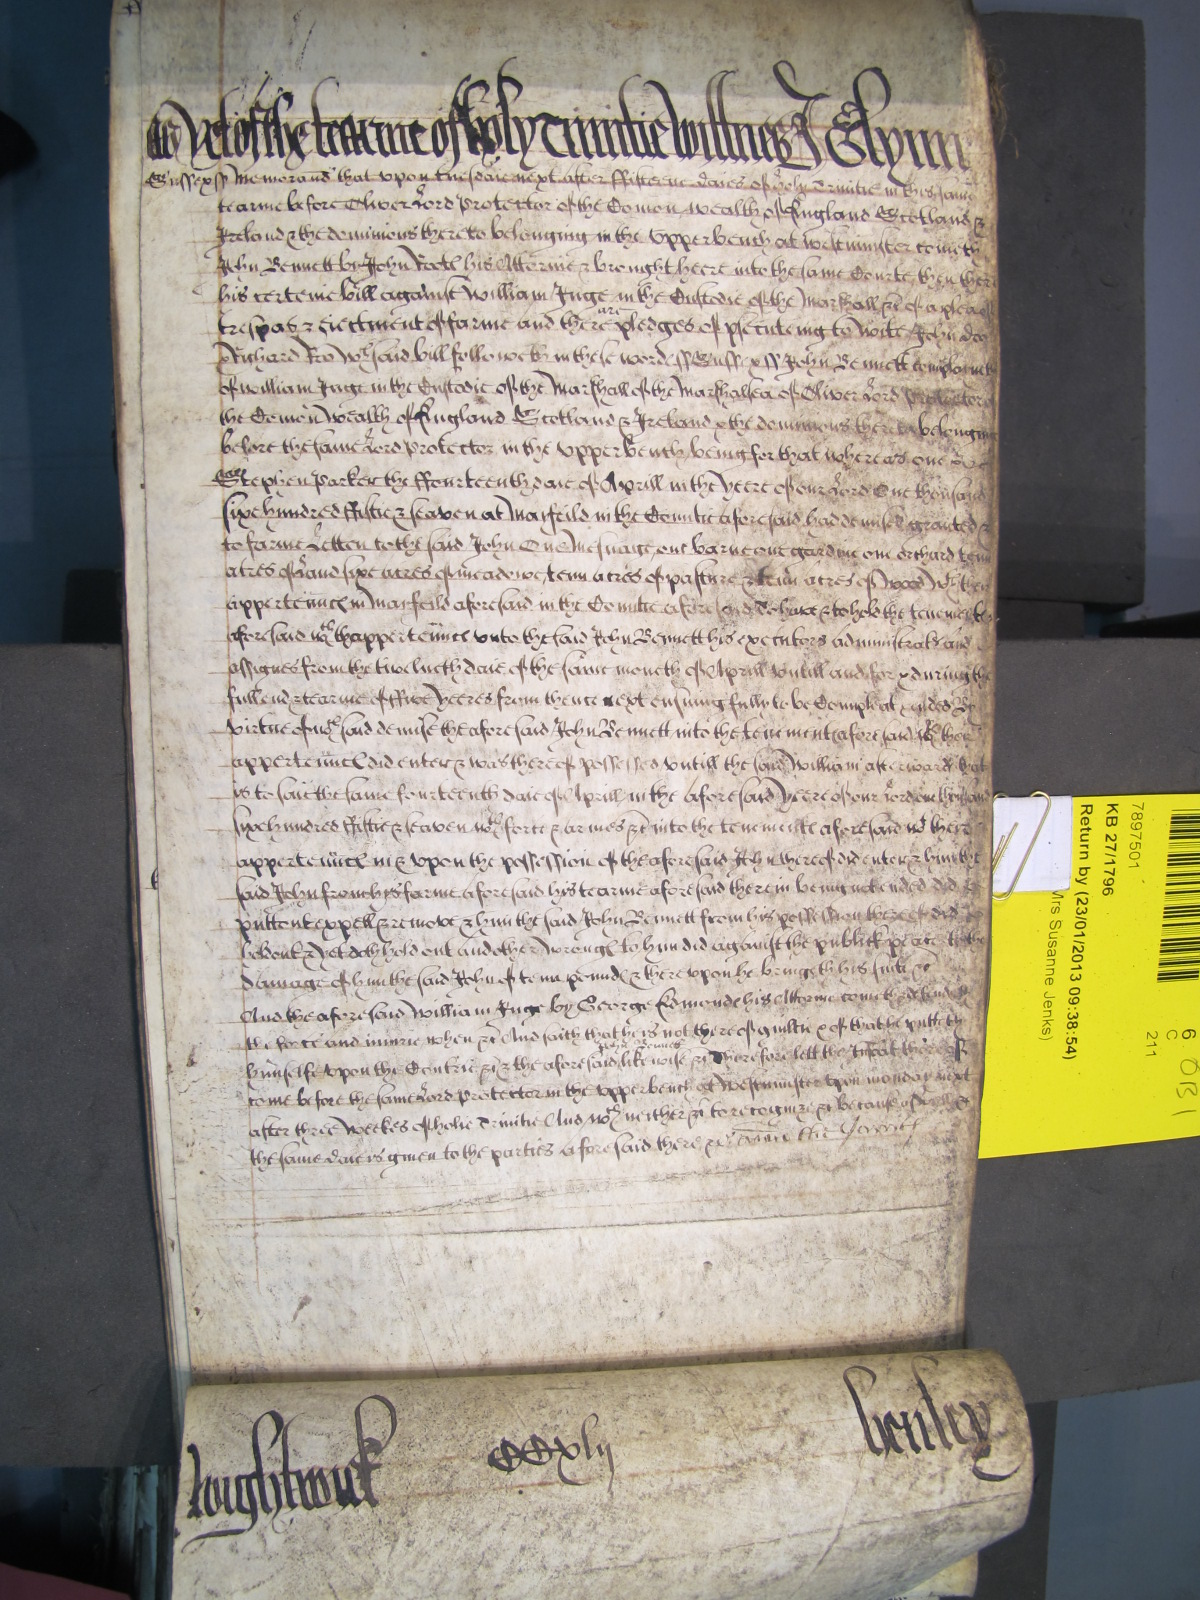 as yet of the tearme of holy Trinitie Wittnes J Glynn
Sussex ss Memorand that upon tuesdaie next after fifteene daies of holy Trinitie in this same
tearme before Oliver Lord Protector of the Comon wealth of England Scotland &
Ireland & the dominions thereto belonging in the Upper bench at westminster cometh
John Bennett by John his Attornie & brought heere into the same Courte then there
his certeine bill against William Inge in the Custodie of the Marshall &c of a plea of
trespas & Eiectment of farme and there are pledges of psecuteing to wite John doo
& Richard Roo wch said bill followeth in these words ss Sussex ss John Bennett complaineth
of William Inge in the Custodie of the Marshall of the Marshalsea of Oliver Lord Protector of
the Comon wealth of England Scotland & Ireland & the dominions thereto belonging
before the same Lord Protector in the Upper bench being for that whereas one
Stephen Parker the ffourteenth daie of Aprill in the yeere of our Lord One thousand
sixe hundred ffiftie & seaven at Marfeild in the Countie aforesaid had demised granted &
to farme Letten to the said John One Mesuage one barne one gardine one orchard tenn
acres of Land sixe acres of meadowe tenn acres of pasture & tenn acres of wood wth their
appertennces in Marfeild aforesaid in the Countie aforesaid To have & to hold the tenements
aforesaid wth thappertennces unto the said John Bennett his executors administrators and
assignes from the twelueth daie of the same moneth of Aprill untill and for & during the
full end & tearme of ffive yeeres from thence next ensuing fully to be Compleat & ended By
virtue of wch said demise the aforesaid John Bennett into the tenements aforesaid wth their
appertennces did enter & was thereof possessed untill the said William afterwards that
is to saie the same fourteenth daie of Aprill in the aforesaid yeere of our Lord one thousand
sixe hundred ffiftie & seaven wth force & armes &c into the tenements aforesaid wth there
appertennces in & upon the possession of the aforesaid John thereof did enter & him the
said John from his farme aforesaid his tearme aforesaid therein being not ended did
putt out expell & remove & him the said John Bennett from his possession thereof did
hold out & yet doth hold out and other wrongs to him did against the publick peace to the
damage of him the said John of tenn pounds & there upon he bringeth his suite &c
And the aforesaid William Inge by George Edmonds his Attornie cometh & defendeth
the force and iniurie when &c And saith that he is not thereof guiltie & of that he putteth
himselfe upon the Contrie &c & the aforesaid John Bennett likewise &c Therefore lett the Iurat thereof
come before the same Lord Protector in the upper bench at Westminster upon monday next
after three weekes of holie Trinitie And wch neither &c to recognize &c because aswell &c
the same daie is given to the parties aforesaid there &c
Loughtwick CCxlij henley
7897501
KB 27/1796
Return by (23/01/2013 09:38:54)
Mrs Susanne Jenks)
6
C
211